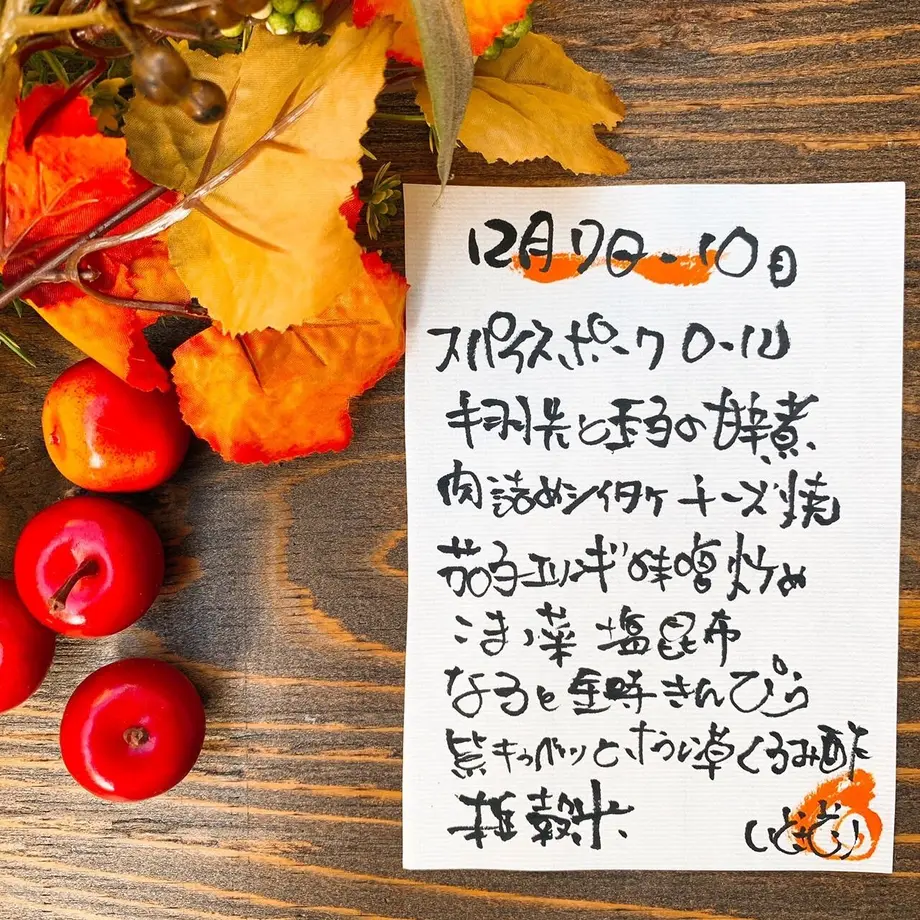 12月7日-10日
スパイスポークロール
手羽先と玉子の甘辛煮
肉詰めシイタケチーズ焼
茄子エリンギ味噌炒め
こまつ菜塩昆布
なると金時きんぴら
紫キャベツとほうれん草くるみ酢
雑穀米